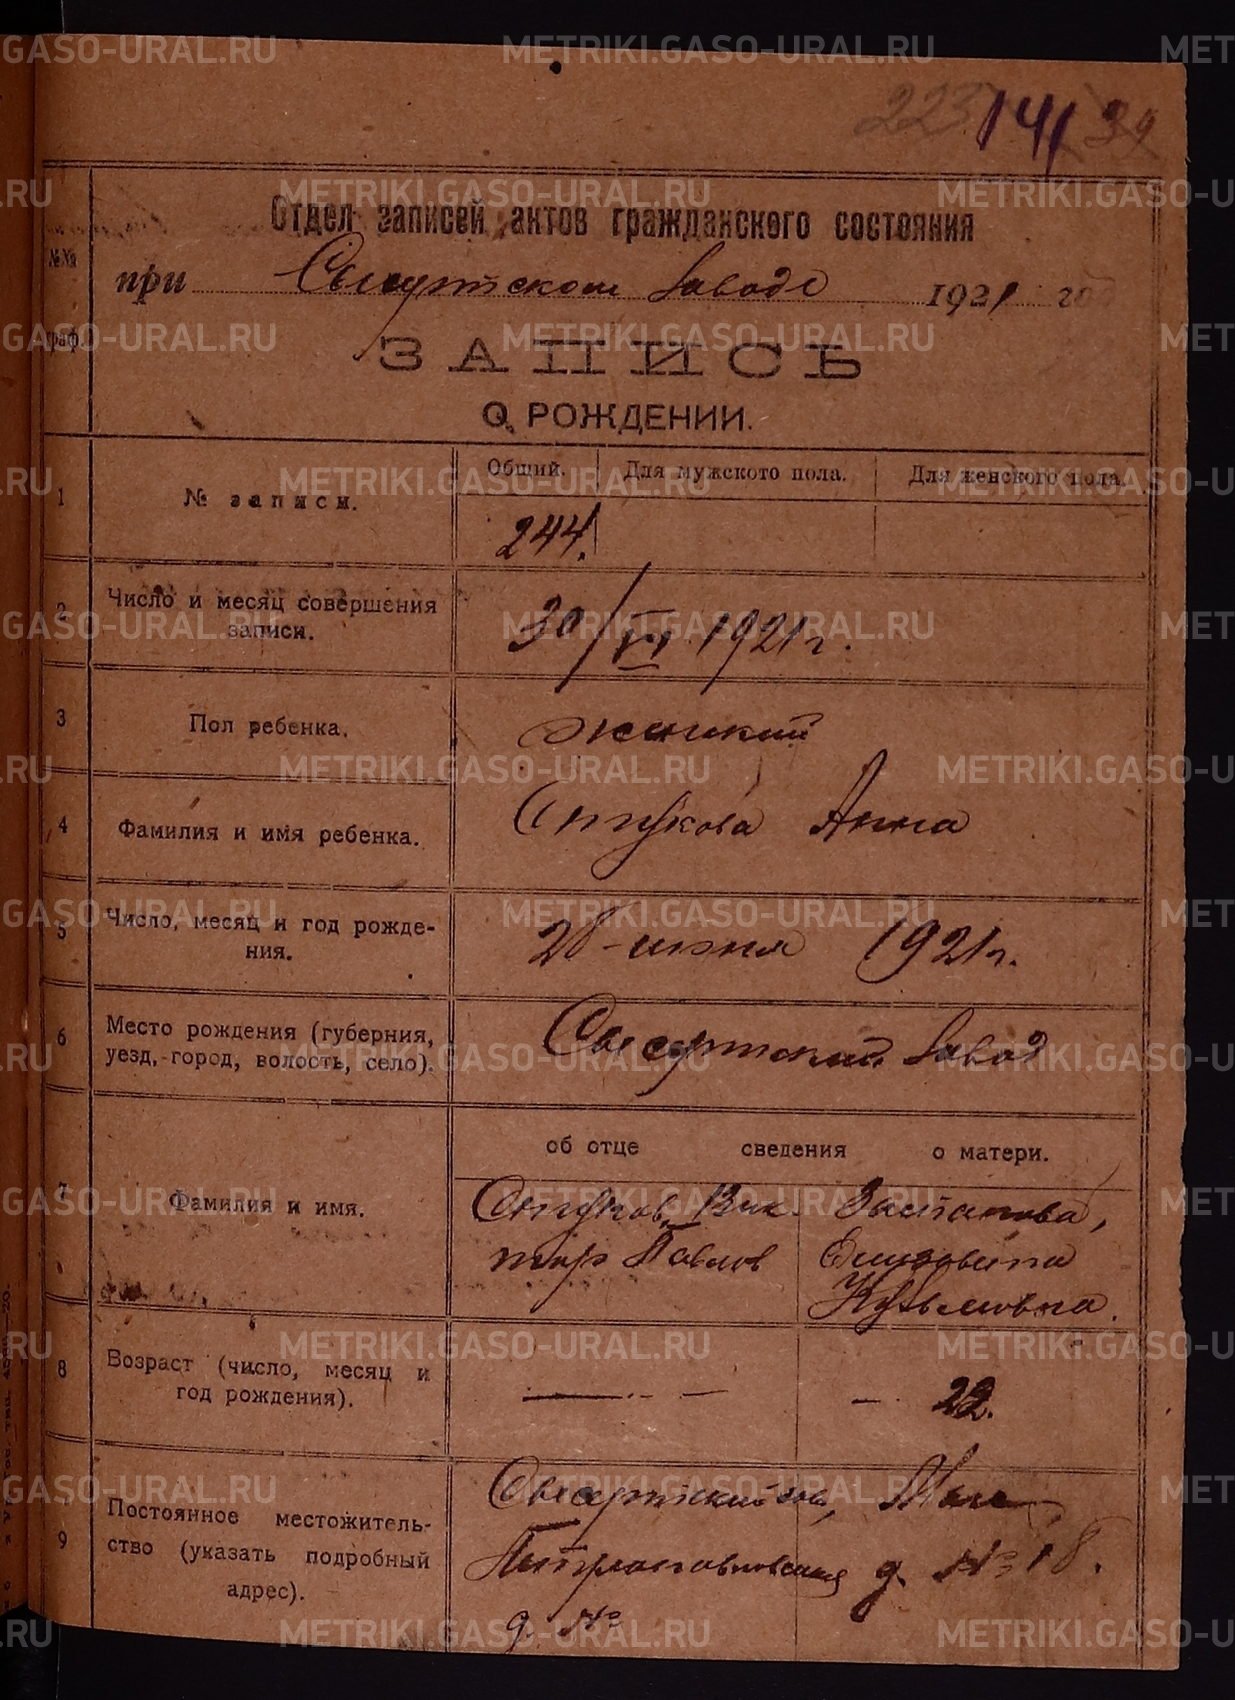 223 141 39
Отдел записей актов гражданского состояния
при Сысертском заводе 1921 год
№№
граф.
ЗАПИСЬ
О РОЖДЕНИИ.
Общий. Для мужского пола. Для женского пола.
1 № записи.
244.
2 Число и месяц совершения
записи.
30/VI 1921 г.
3 Пол ребенка.
женский
4 Фамилия и имя ребенка.
Анна
5 Число, месяц и год рожде-
ния.
28 июня 1921 г.
6 Место рождения (губерния,
уезд, город, волость, село).
Сысертский завод
об отце сведения о матери.
7 Фамилия и имя.
Вик
тор Павлов
Кузьмовна.
8 Возраст (число, месяц и
год рождения).
— — — 22.
9 Постоянное местожитель-
ство (указать подробный
адрес).
Сысертский зав,
Петропавловская д. № 18.
д. №
METRIKI.GASO-URAL.RU